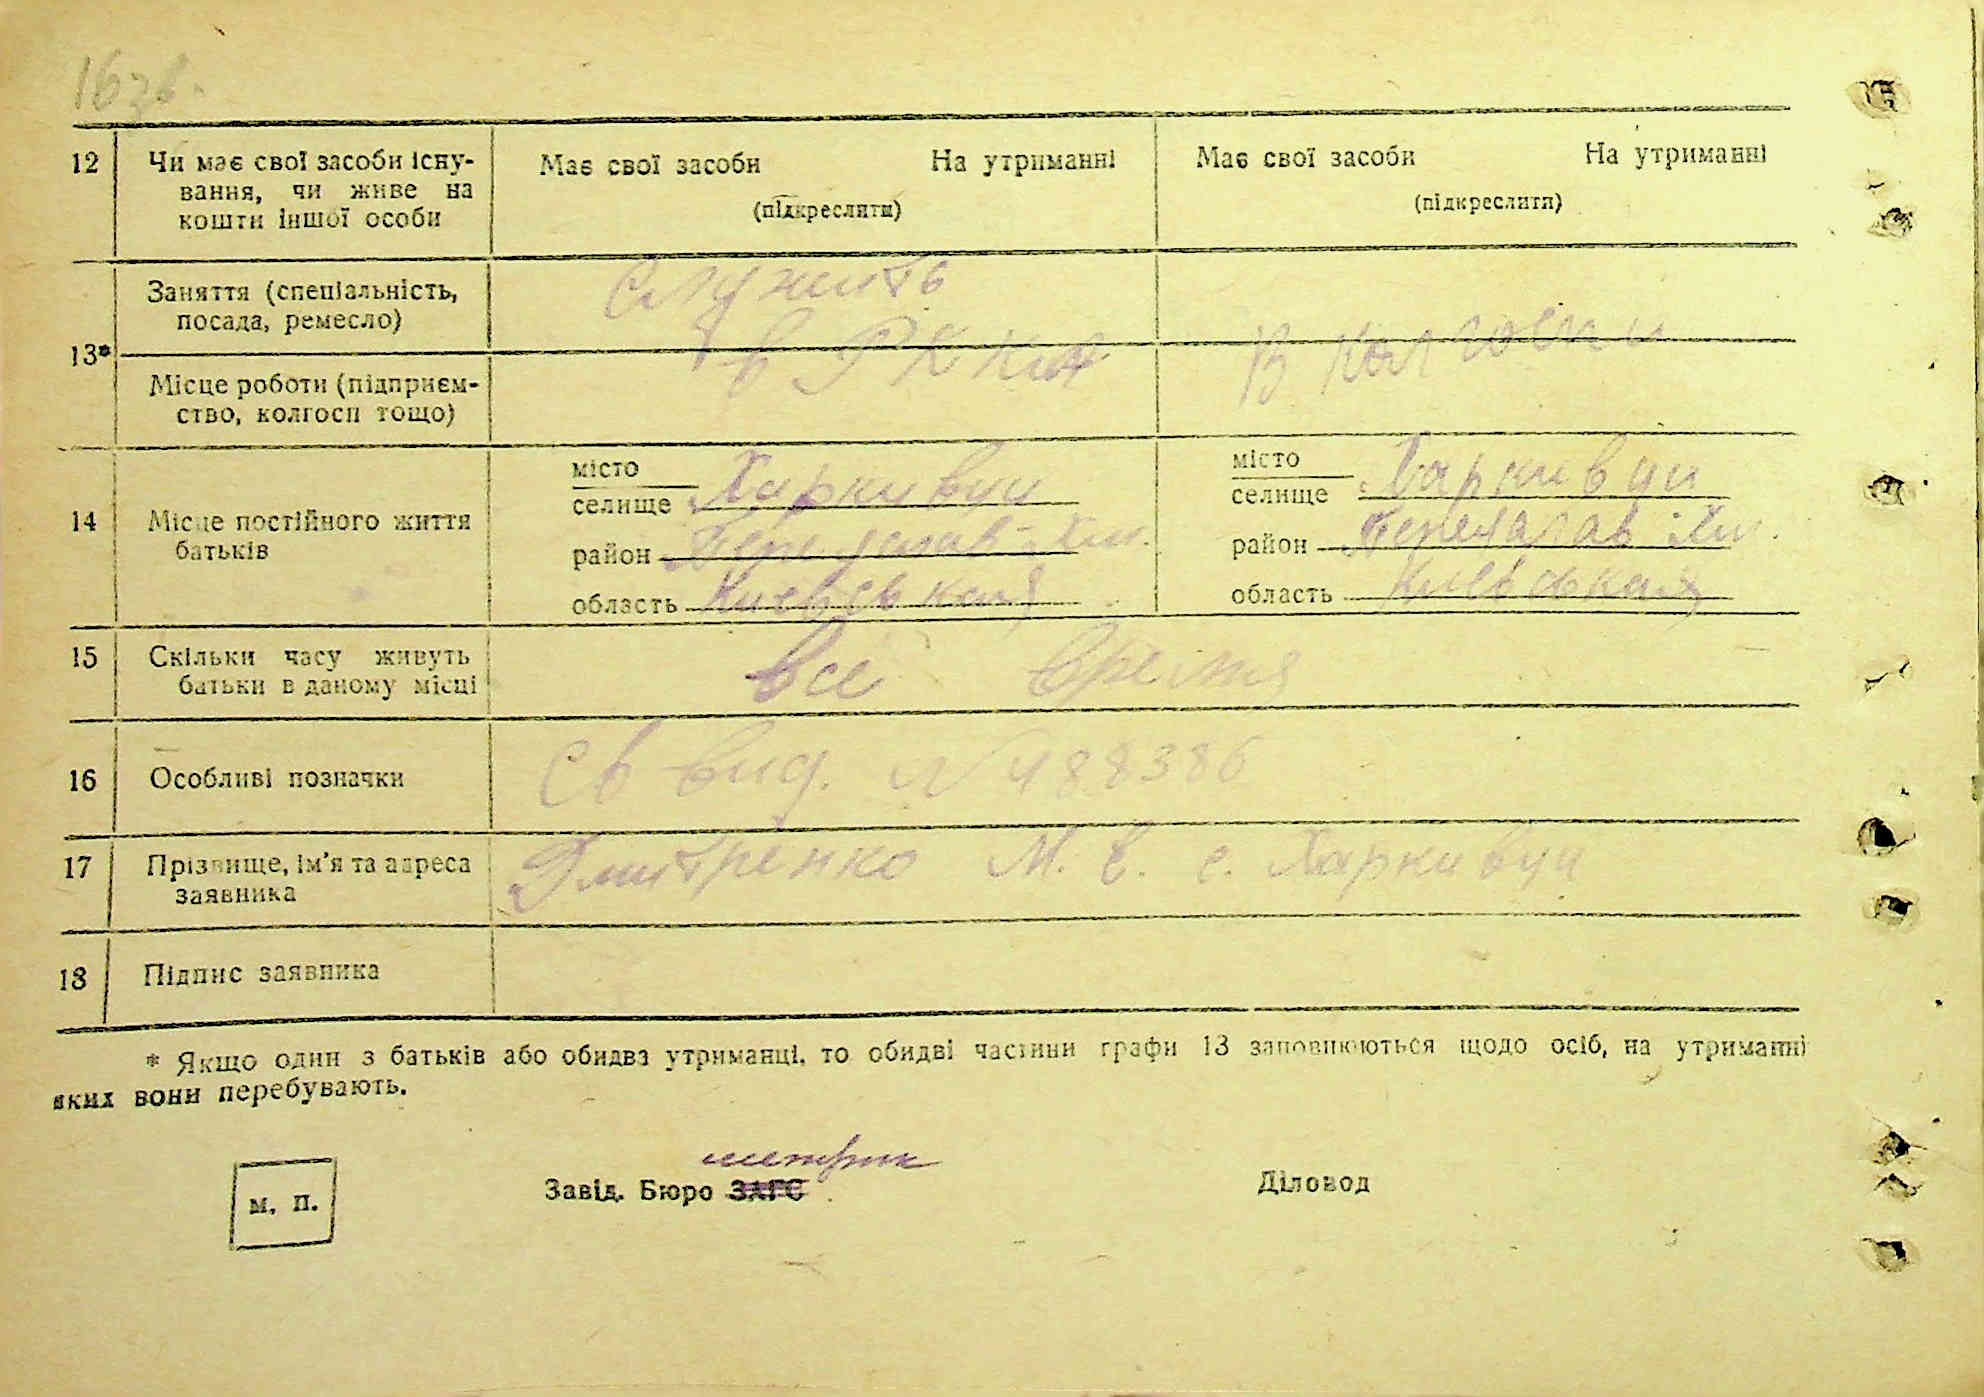 16зв.
12 Чи має свої засоби існу- Має свої засоби На утриманні Має свої засоби На утриманні
вання, чи живе на (підкреслити) (підкреслити)
кошти іншої особи
Заняття (спеціальність, служить
посада, ремесло)
13* в РККА В колгоспи
Місце роботи (підприєм-
ство, колгосп тощо)
місто місто
селище Харкивци селище Харкивци
14 Місце постійного життя
батьків
район Переялав-Хм. район Переяалав Хм.
область Киевськая область Киевськая
15 Скільки часу живуть все время
батьки в даному місці
16 Особливі позначки Сввид. № 488386
17 Прізвище, ім’я та адреса Дмитренко М. В. с. Харкивци
заявника
18 Підпис заявника
* Якщо один з батьків або обидва утриманці, то обидві частини графи 13 заповнюються щодо осіб, на утриманні
яких вони перебувають.
метрик
м. п. Завід. Бюро ЗАГС Діловод